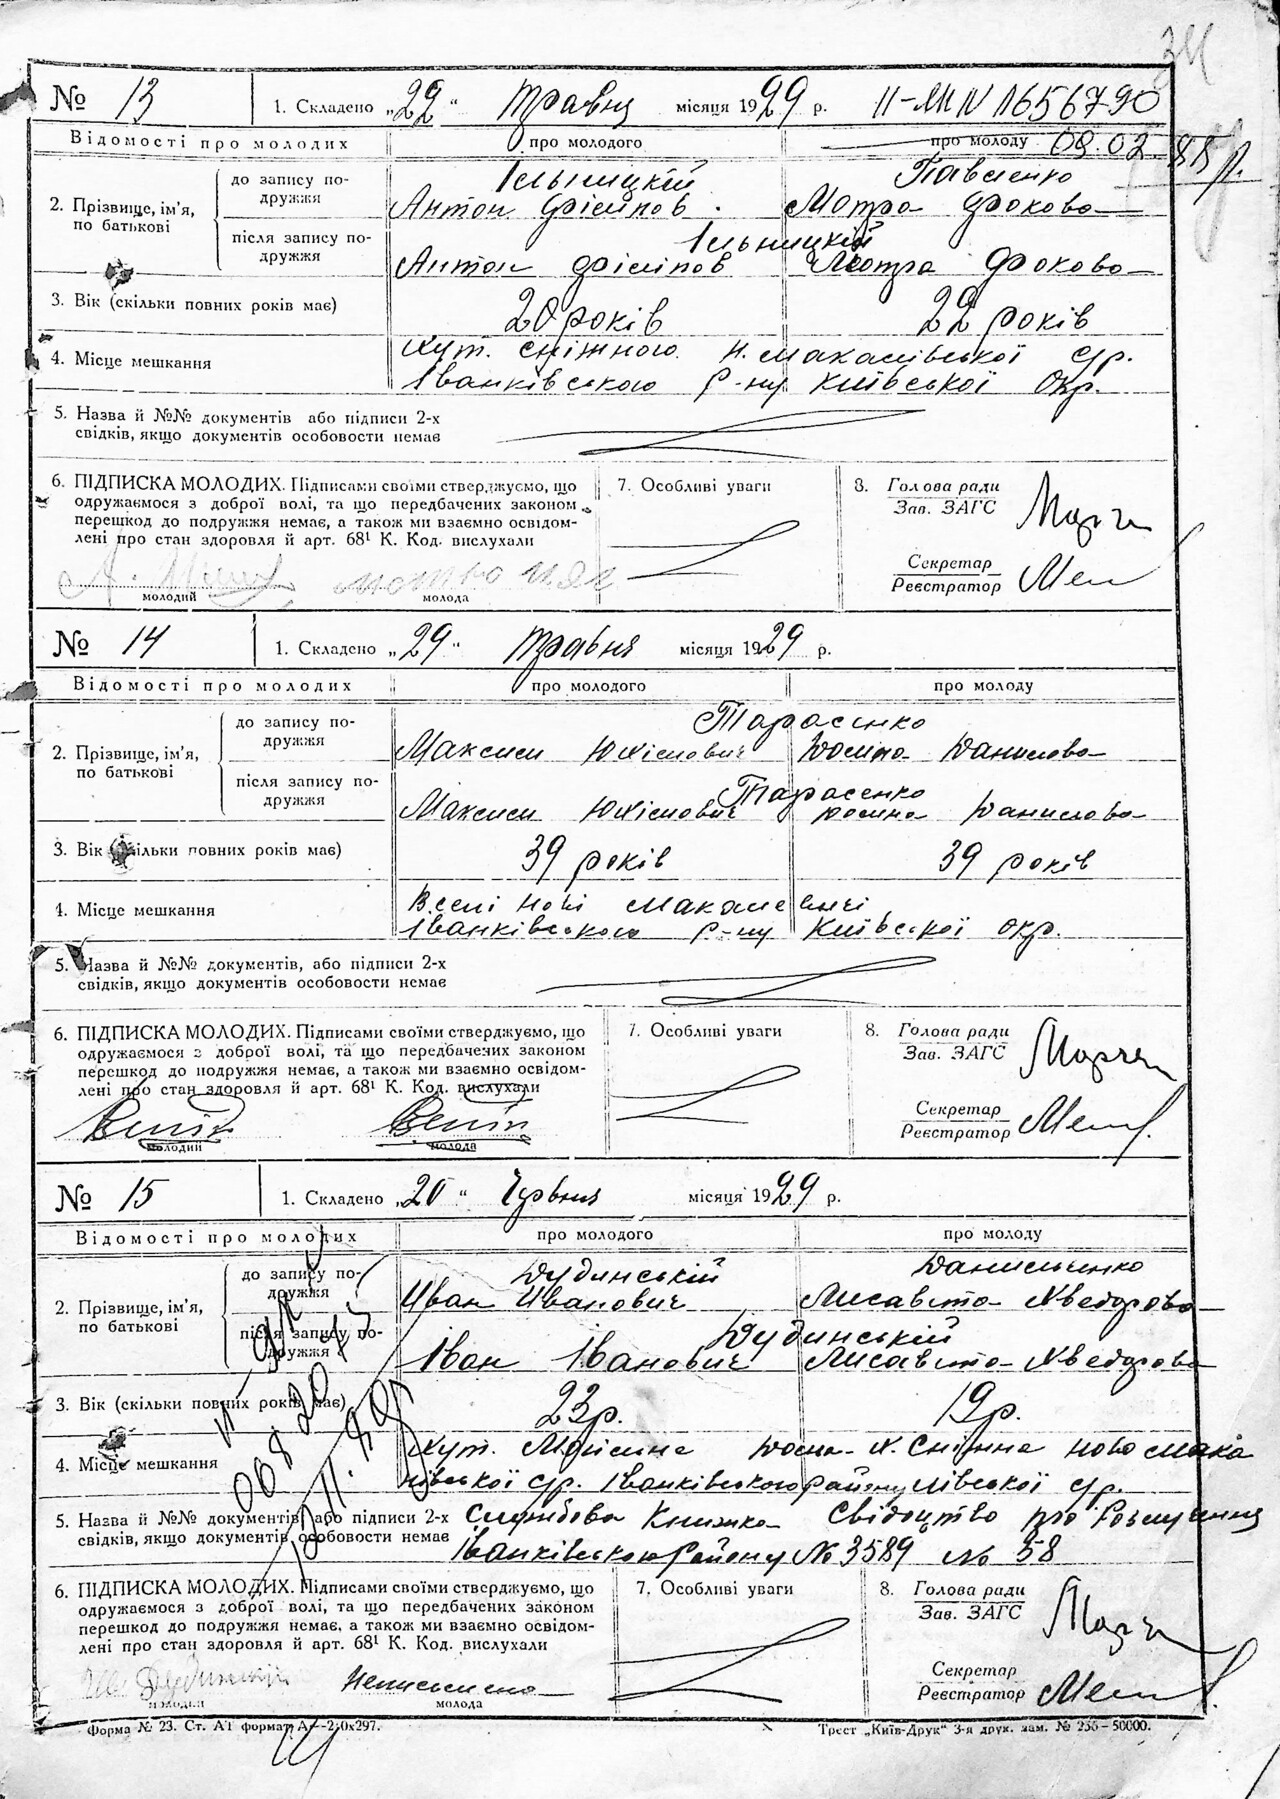 34
№ 13 1. Складено „22“ Травня місяця 1929 р. II-МК N 1656790
Відомості про молодих про молодого про молоду 09.02.88 р.
2. Прізвище, ім'я, по батькові
до запису подружжя
Ільницкій Павленко
Антон Філіпов Мотра Фокова
після запису подружжя
Ільницкій
Антон Філіпов Мотра Фокова
3. Вік (скільки повних років має) 20 років 22 років
4. Місце мешкання
Хут. Сніжного Н. Макалівської с/р.
Іванківського р-ну Київської Окр.
5. Назва й №№ документів або підписи 2-х
свідків, якщо документів особовости немає
6. ПІДПИСКА МОЛОДИХ. Підписами своїми стверджуємо, що
одружаємося з доброї волі, та що передбачених законом
перешкод до подружжя немає, а також ми взаємно освідом-
лені про стан здоровля й арт. 68¹ К. Код. вислухали
молодий молода
7. Особливі уваги
8. Голова ради
Зав. ЗАГС
Секретар
Реєстратор
№ 14 1. Складено „29“ Травня місяця 1929 р.
Відомості про молодих про молодого про молоду
2. Прізвище, ім'я, по батькові
до запису подружжя
Тарасенко
Максим Юхімович Данилова
після запису подружжя
Тарасенко
Максим Юхімович Данилова
3. Вік (скільки повних років має) 39 років 39 років
4. Місце мешкання
В селі Нові Макалевичі
Іванківського р-ну Київської окр.
5. Назва й №№ документів, або підписи 2-х
свідків, якщо документів особовости немає
6. ПІДПИСКА МОЛОДИХ. Підписами своїми стверджуємо, що
одружаємося з доброї волі, та що передбачених законом
перешкод до подружжя немає, а також ми взаємно освідом-
лені про стан здоровля й арт. 68¹ К. Код. вислухали
молодий молода
7. Особливі уваги
8. Голова ради
Зав. ЗАГС
Секретар
Реєстратор
№ 15 1. Складено „20“ Червня місяця 1929 р.
Відомості про молодих про молодого про молоду
2. Прізвище, ім'я, по батькові
до запису подружжя
Дудинській Данильченко
Иван Иванович Лисавета Хведорова
після запису подружжя
Дудинській
Іван Іванович Лисавета Хведорова
3. Вік (скільки повних років має) 23 р. 19 р.
4. Місце мешкання
Хут. Х. Сніжне Ново Мака
Іванківського району с/р.
5. Назва й №№ документів, або підписи 2-х
свідків, якщо документів особовости немає
Службова Книжка Свідоцтво про Розлучення
Іванківського Району № 3589 № 58
6. ПІДПИСКА МОЛОДИХ. Підписами своїми стверджуємо, що
одружаємося з доброї волі, та що передбачених законом
перешкод до подружжя немає, а також ми взаємно освідом-
лені про стан здоровля й арт. 68¹ К. Код. вислухали
Неписьмена
молодий молода
7. Особливі уваги
8. Голова ради
Зав. ЗАГС
Секретар
Реєстратор
Форма № 23. Ст. А1 формат А—210x297. Трест „Київ-Друк“ 3-я друк. зам. № 255—50000.